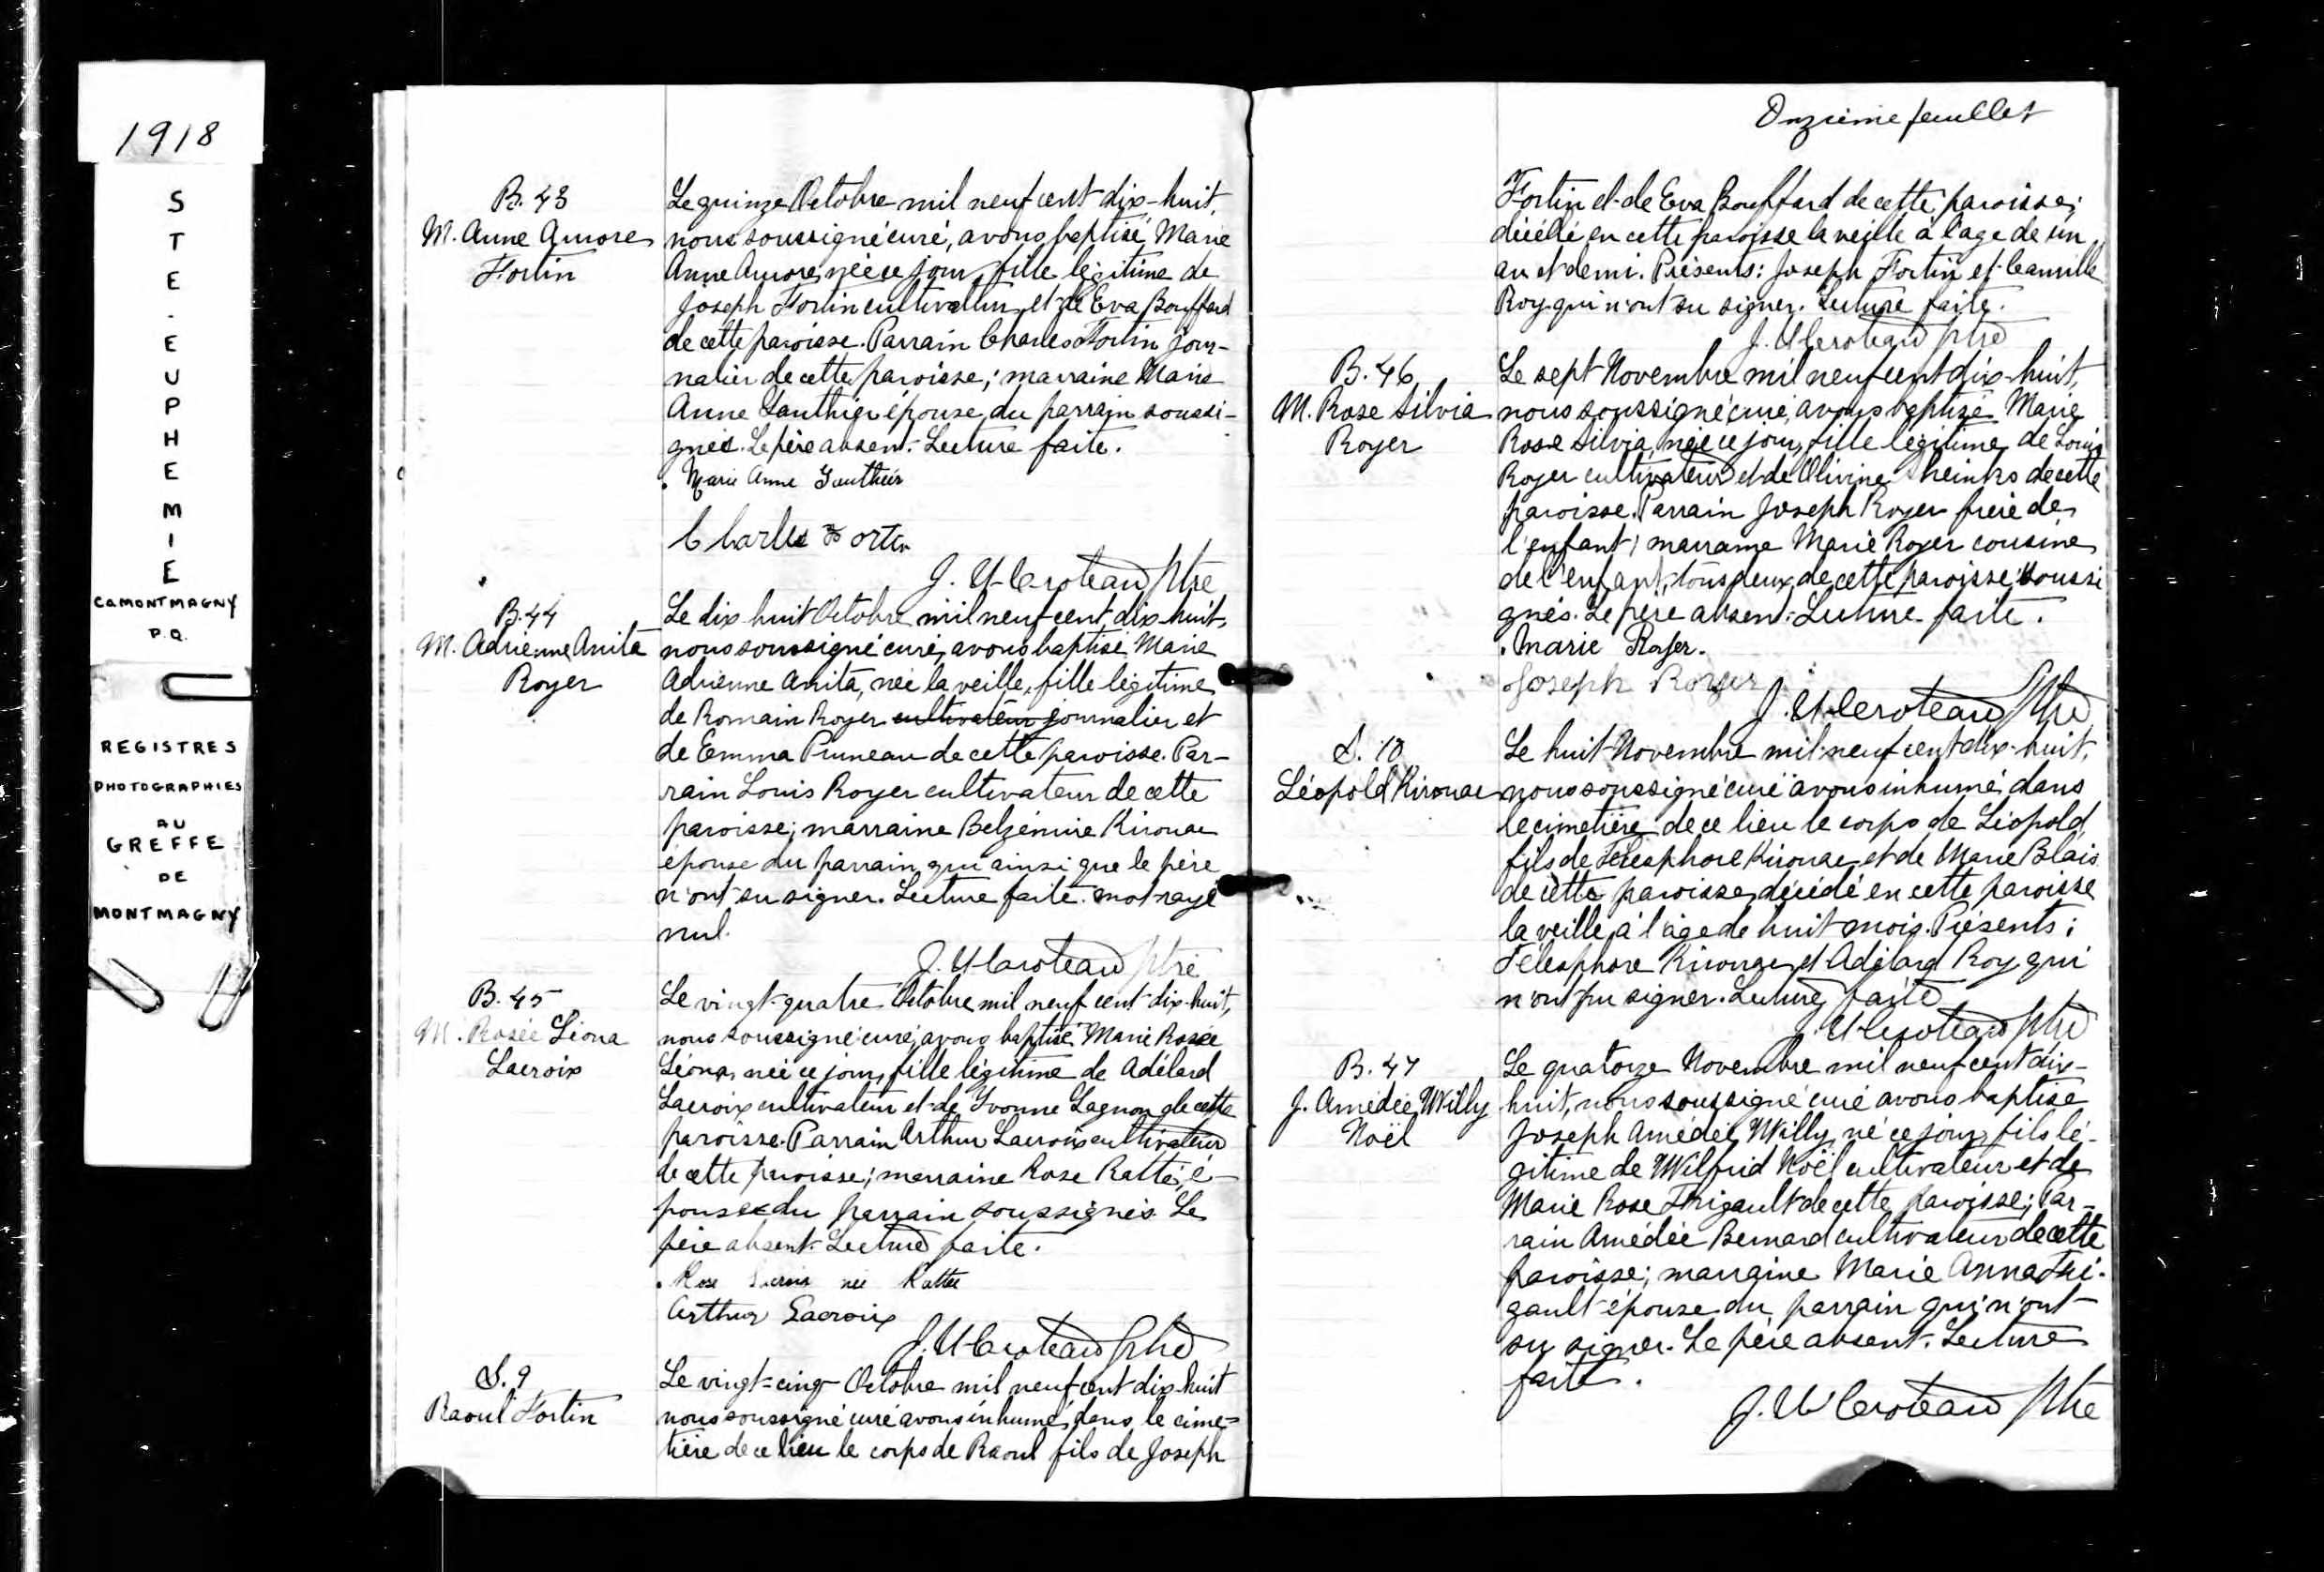 1918
STE. EUPHEMIE
CO MONTMAGNY
P.Q.
REGISTRES
PHOTOGRAPHIES
AU
GREFFE
DE
MONTMAGNY
B. 43
M. Anne Aurore
Fortin
Le quinze Octobre mil neuf cent dix-huit,
nous soussigné curé, avons baptisé Marie
Anne Aurore, née ce jour, fille légitime de
Joseph Fortin cultivateur et de Eva Bouffard
de cette paroisse. Parrain Charles Fortin jour-
nalier de cette paroisse; marraine Marie
Anne Gauthier épouse du parrain soussi-
gnés. Le père absent. Lecture faite.
Marie Anne Gauthier
Charles Fortin
J. U Croteau Ptre
B. 44
M. Adrienne Anita
Royer
Le dix huit Octobre mil neuf cent dix-huit,
nous soussigné curé, avons baptisé Marie
Adrienne Anita, née la veille, fille légitime
de Romain Royer cultivateur journalier et
de Emma Pruneau de cette paroisse. Par-
rain Louis Royer cultivateur de cette
paroisse; marraine Belzémire Kirouac
épouse du parrain qui ainsi que le père
n'ont su signer. Lecture faite. mot rayé
nul.
J. U Croteau Ptre
B. 45
M. Rosée Léona
Lacroix
Le vingt-quatre Octobre mil neuf cent dix-huit,
nous soussigné curé, avons baptisé Marie Rosée
Léona, née ce jour, fille légitime de Adélard
Lacroix cultivateur et de Yvonne Gagnon de cette
paroisse. Parrain Arthur Lacroix cultivateur
de cette paroisse; marraine Rose Ratté, é-
pouse du parrain soussignés. Le
père absent. Lecture faite.
Rose Lacroix née Rattee
Arthur Lacroix
J. U Croteau Ptre
S. 9
Raoul Fortin
Le vingt-cinq Octobre mil neuf cent dix-huit
nous soussigné curé avons inhumé, dans le cime-
tière de ce lieu le corps de Raoul fils de Joseph
Onzième feuillet
Fortin et de Eva Bouffard de cette paroisse;
décédé en cette paroisse la veille à l'age de un
an et demi. Présents: Joseph Fortin et Camille
Roy qui n'ont su signer. Lecture faite.
J. U Croteau Ptre
B. 46
M. Rose Silvia
Royer
Le sept Novembre mil neuf cent dix-huit,
nous soussigné curé, avons baptisé Marie
Rose Silvia, née ce jour, fille légitime de Louis
Royer cultivateur et de Olivine de cette
paroisse. Parrain Joseph Royer frère de
l'enfant; marraine Marie Royer cousine
de l'enfant, tous deux de cette paroisse soussi
gnés. Le père absent. Lecture faite.
Marie Royer.
Joseph Royer
J. U Croteau Ptre
S. 10
Léopold Kirouac
Le huit Novembre mil neuf cent dix-huit,
nous soussigné curé avons inhumé, dans
le cimetière de ce lieu le corps de Léopold,
fils de Télesphore Kirouac et de Marie Blais
de cette paroisse, décédé en cette paroisse
la veille, à l'age de huit mois. Présents:
Télesphore Kirouac et Adélard Roy qui
n'ont pu signer. Lecture faite
J. U Croteau Ptre
B. 47
J. Amédée Willy
Noël
Le quatorze Novembre mil neuf cent dix-
huit, nous soussigné curé avons baptisé
Joseph Amédée Willy, né ce jour, fils lé-
gitime de Wilfrid Noël cultivateur et de
Marie Rose Thigault de cette paroisse; Par-
rain Amédée Bernard cultivateur de cette
paroisse; marraine Marie Anna Thi-
gault épouse du parrain qui n'ont
su signer. Le père absent. Lecture
faite.
J. U Croteau Ptre